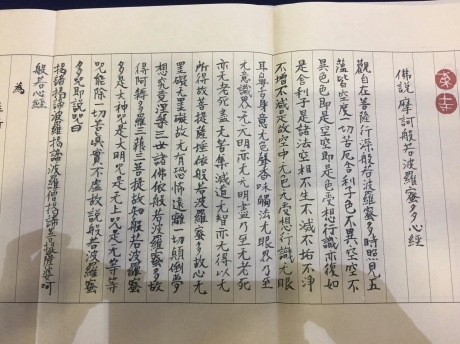 佛說摩訶般若波羅蜜多心經
觀自在菩薩行深般若波羅蜜多時照見五
蘊皆空度一切苦厄舍利子色不異空空不
異色色即是空空即是色受想行識亦復如
是舍利子是諸法空相不生不滅不垢不淨
不增不減是故空中无色无受想行識无眼
耳鼻舌身意无色聲香味觸法无眼界乃至
无意識界无无明亦无无明盡乃至无老死
亦无老死盡无苦集滅道无智亦无得以无
所得故菩提薩埵依般若波羅蜜多故心无
罣礙无罣礙故无有恐怖遠離一切顛倒夢
想究竟涅槃三世諸佛依般若波羅蜜多故
得阿耨多羅三藐三菩提故知般若波羅蜜
多是大神咒是大明咒是无上咒是无等等
咒能除一切苦真實不虛故說般若波羅蜜
多咒即說咒曰
揭諦揭諦波羅揭諦波羅僧揭諦菩提薩婆訶
般若心經
為